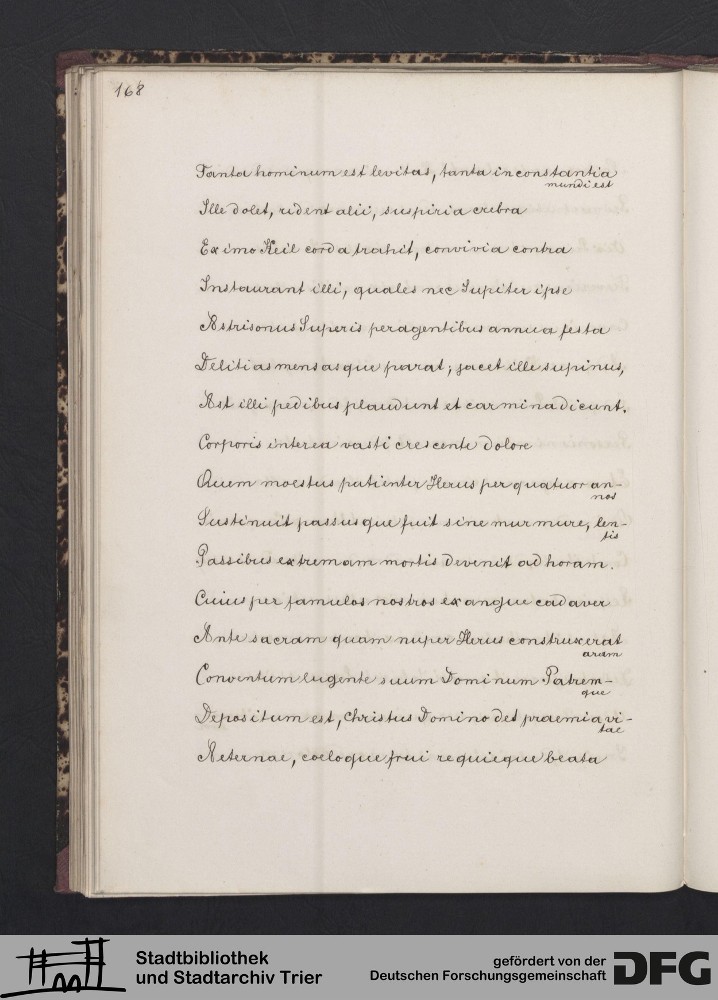 168
Tanta hominum est levitas, tanta inconstantia
mundi est
Ille dolet, rident alii, suspiria crebra
Ex imo Keil corda trahit, convivia contra
Instaurant illi, quales nec Iupiter ipse
Astrisonus Superis peragentibus annua festa
Delitias mensasque parat; jacet ille supinus,
Ast illi pedibus plaudunt et carmina dicunt.
Corporis interea vasti crescente dolore
Quem moestus patienter Herus per quatuor an-
nos
Sustinuit passusque fuit sine murmure, len-
tis
Passibus extremam mortis devenit ad horam.
Cuius per famulos nostros exangue cadaver
Ante sacram quam nuper Herus construxerat
aram
Conventum lugente suum Dominum Patrem-
que
Depositum est, Christus Domino det praemia vi-
tae
Aeternae, coeloque frui requieque beata
Stadtbibliothek
und Stadtarchiv Trier
gefördert von der
Deutschen Forschungsgemeinschaft
DFG